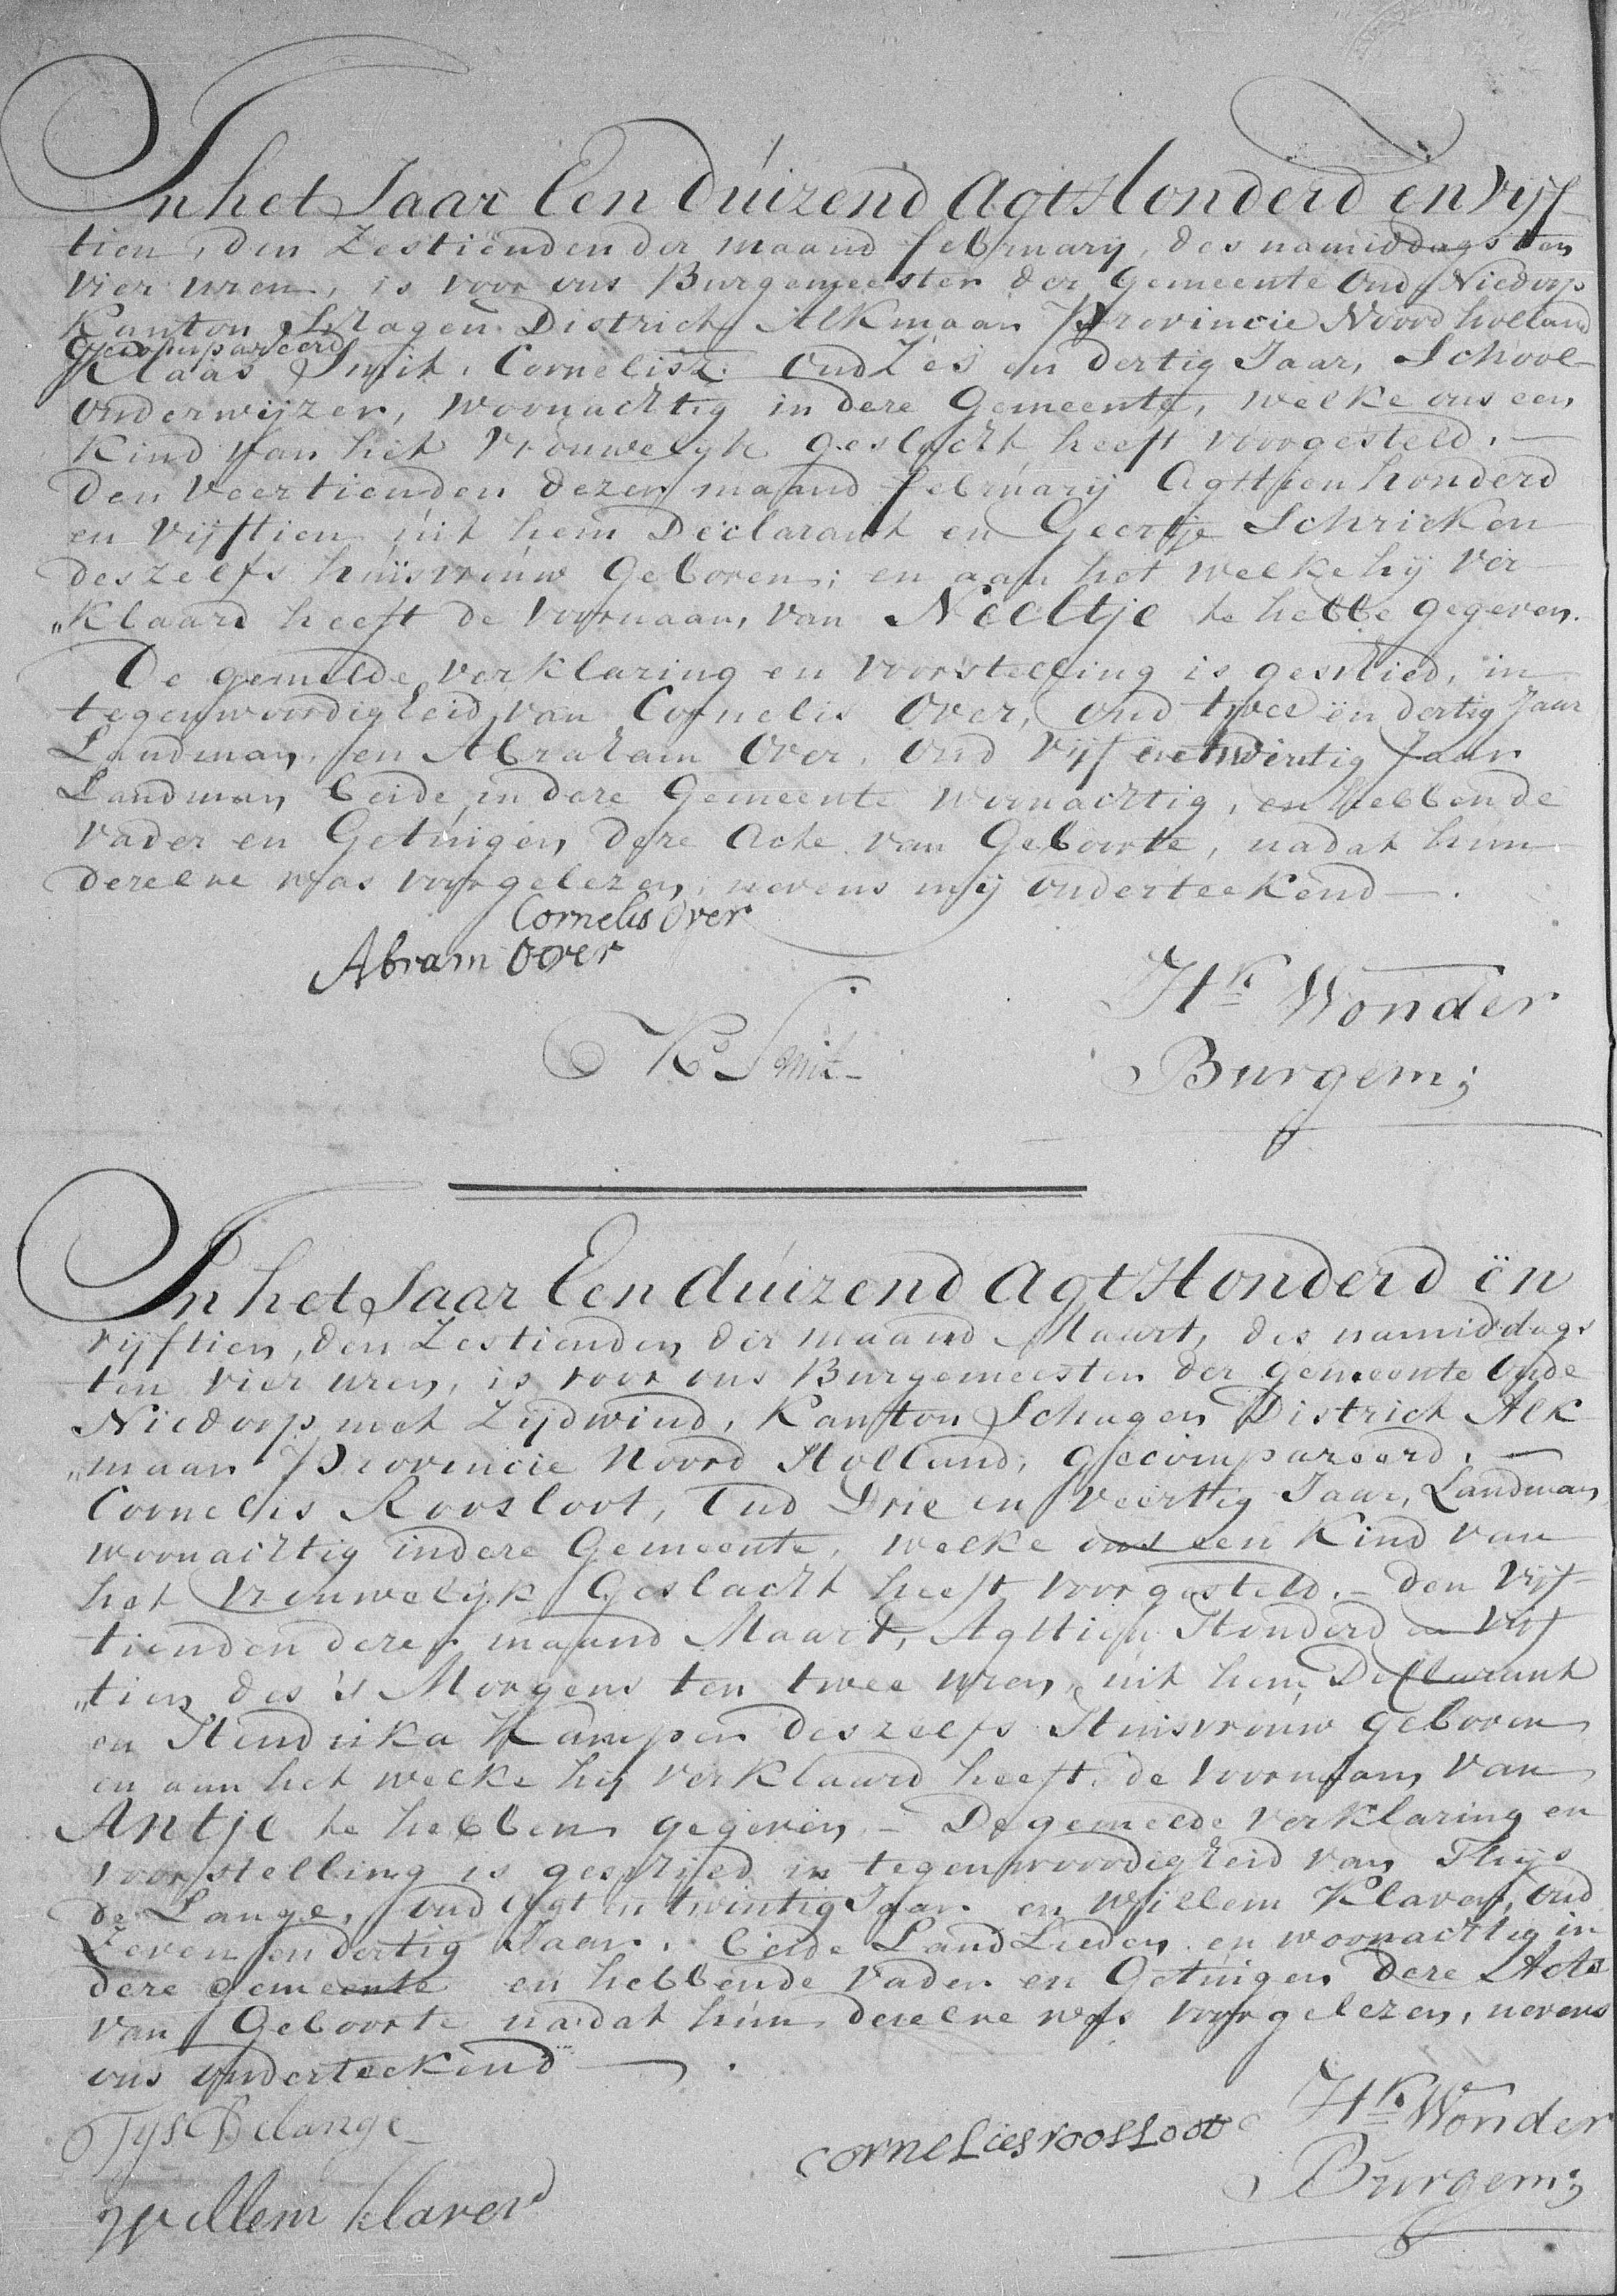 In het Jaar Een duizend Agt Honderd en vijf-
tien, den Zestienden der maand february, des namiddags ten
vier uren, is voor ons Burgemeester der Gemeente Oud Niedorp
Kanton Schagen District Alkmaar Provincie Noord holland
Gecompareerd
Klaas Smit, Cornelisz: oud Zes en dertig Jaar, School-
onderwijzer, woonachtig in deze Gemeente, welke ons een
Kind van het vrouwelijk geslacht heeft voorgesteld. —
Den veertienden dezer maand february Agttien honderd
en vijftien uit hem Declarant en Geertje Schricken
deszelfs huisvrouw Geboren; en aan het welke hij ver-
"klaard heeft de voornaam van Neeltje te hebbe gegeven.
De gemelde verklaring en voorstelling is geschied, in
tegenwoordigheid van Cornelis Over, oud twee en dertig Jaar
Landman, en Abraham Over, oud vijf en twintig Jaar
Landman beide in deze Gemeente woonachtig, en hebbende
vader en Getuigen deze Acte van Geboorte, nadat hun
dezelve was voorgelezen, nevens mij onderteekend —.
Cornelis Over
Abram Over
Hk Wonder
Ks Smit
Burgem;
In het Jaar Een duizend Agt Honderd en
vijftien, den Zestienden der maand Maart, des namiddags
ten vier uren, is voor ons Burgemeester der Gemeente Oude
Niedorp met Zijdwind, Kanton Schagen District Alk
"maar Provincie Noord Holland, gecompareerd. —
Cornelis Roosloot, Oud Drie en veertig Jaar, Landman
woonachtig in deze Gemeente, welke ons een Kind van
het vrouwelijk Geslacht heeft voorgesteld. – den vijf-
tienden dezer maand Maart, Agttien Honderd en vijf
"tien des 's Morgens ten twee uren, uit hem Declarant
en Hendrika Kamper deszelfs Huisvrouw geboren
en aan het welke hij verklaard heeft de voornaam van
Antje te hebben gegeven – De gemelde verklaring en
voorstelling is geschied in tegenwoordigheid van Thijs
de Lange, oud agt en twintig Jaar en Willem Klaver, oud
Zeven en dertig Jaar. beide Land Lieden en woonachtig in
deze gemeente en hebbende vader en Getuigen deze Acte
van Geboorte nadat hun dezelve was voorgelezen, nevens
ons onderteekend —.
Tys Delange
Hk Wonder
corneLies roosLoot
Burgem;
Willem klaver